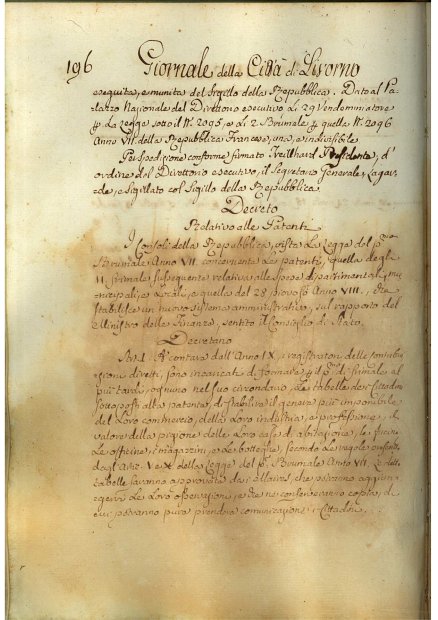 196 Giornale della Città di Livorno
eseguita, e munita del Sigillo della Repubblica. Dato al Pa-
lazzo Nazionale del Direttorio esecutivo li 29 Vendemmiatore
p. la Legge sotto il N.º 2095, e li 2 Brumale p. quella N.º 2096
Anno VII della Repubblica Francese, una, e indivisibile
Per spedizione conforme firmato Treilhard Presidente, d'
ordine del Direttorio esecutivo, il Segretario Generale, Lagar-
de, e Sigillato col Sigillo della Repubblica
Decreto
Relativo alle Patenti
I Consoli della Repubblica, vista la Legge del p.mo
Brumale, Anno VII, concernente le patenti, quella degli
11 Frimale susseguente relativa alle spese dipartimentali, mu-
nicipali, e locali, e quella del 28 piovoso Anno VIII, che
stabilisce un nuovo sistema amministrativo, sul rapporto del
Ministro delle Finanze, sentito il Consiglio di Stato,
Decretano
Art. 1. A contare dall'Anno IX, i registratori delle contribu-
zioni diretti, sono incaricati di formare il p.mo di frimale al
più tardi, ognuno nel suo circondario, le tabelle dei Cittadini
sottoposti alla patente, di stabilire il genere più imponibile
del loro commercio, della loro industria, e professione, il
valore della pigione delle loro case di abitazione, le fucine
le officine, i magazzini, e le botteghe, secondo le regole
degli Art. V e X della Legge del p. Brumale Anno VII. Le dette
tabelle saranno approvate dai Maires, che potranno aggiun-
gervi le loro osservazioni, e che ne conserveranno copia, di
cui potranno pure prendere comunicazione i Cittadini